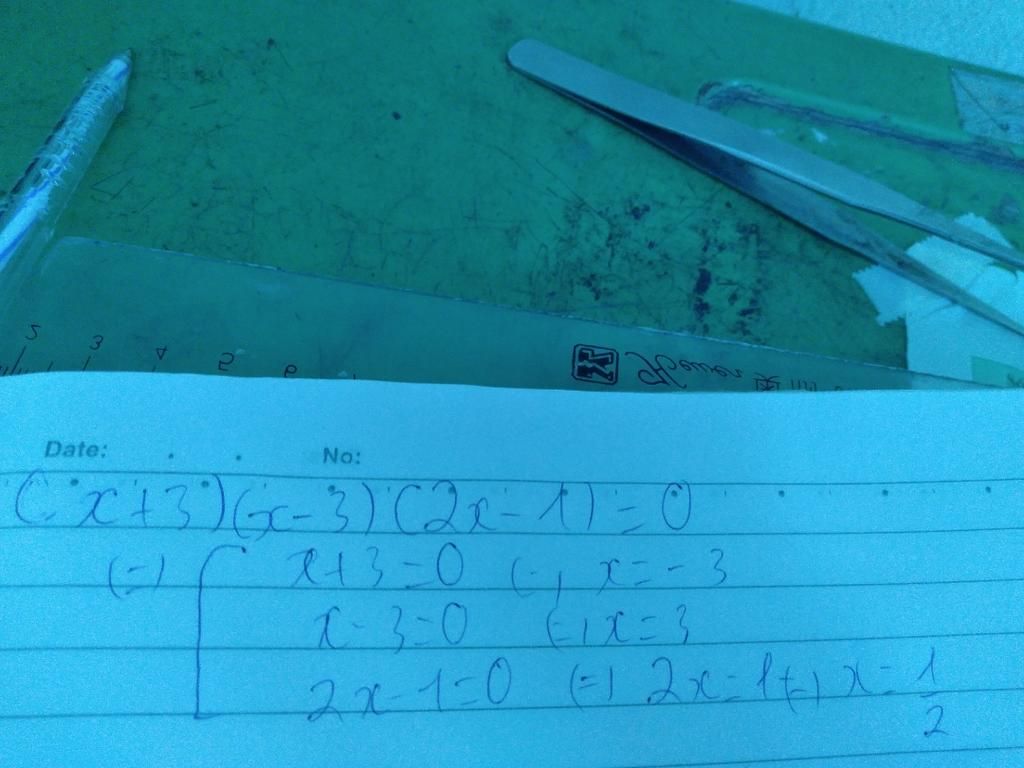 2 3 4 5 6
Date: . . No:
(x+3)(x-3)(2x-1)=0
(=) [ x+3=0 (=) x=-3
x-3=0 (=) x=3
2x-1=0 (=) 2x=1 (=) x=1/2